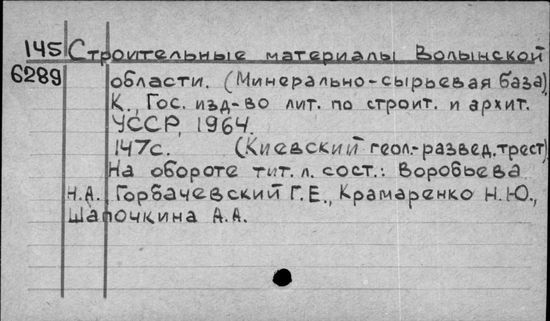 145 Строительные материалы Волынской
6289 области. (Минерально-сырьевая база)
К., Гос. изд-во лит. по строит. и архит.
УССР, 1964.
147с. (Киевский геол.-развед. трест)
На обороте тит. л. сост.: Воробьева
Н.А., Горбачевский Г.Е., Крамаренко Н.Ю.,
Шапочкина А.А.